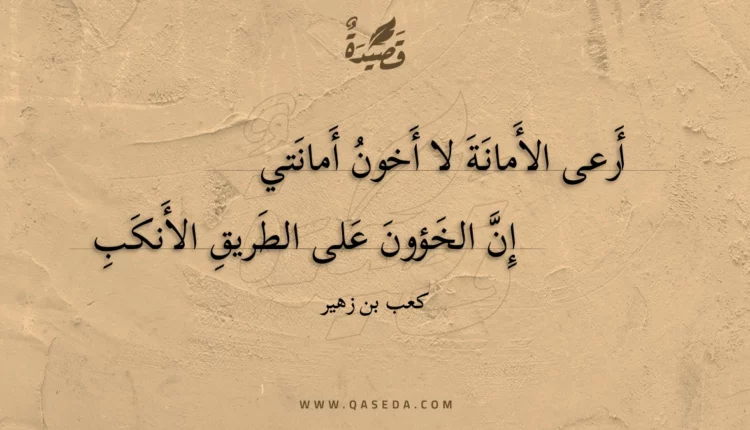 قَصِيدَةٌ
أَرعى الأَمانَةَ لا أَخونُ أَمانَتي
إِنَّ الخَؤونَ عَلى الطَريقِ الأَنكَبِ
كعب بن زهير
WWW.QASEDA.COM